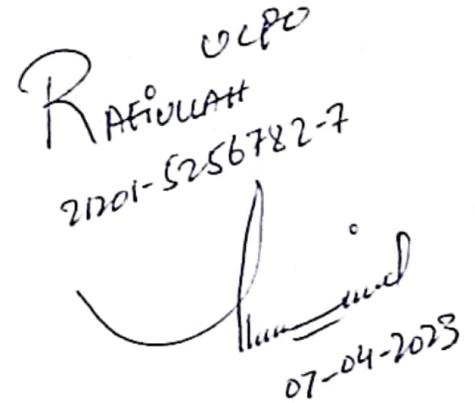 UCPO
RAFiULLAH
21201-5256782-7
07-04-2023